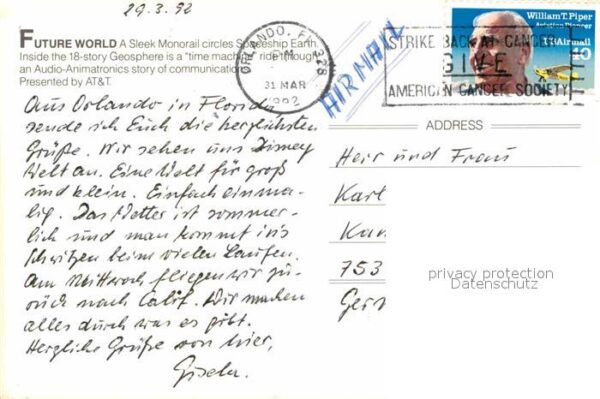 29.3.92
FUTURE WORLD A Sleek Monorail circles Spaceship Earth.
Inside the 18-story Geosphere is a "time machine" ride through
an Audio-Animatronics story of communication.
Presented by AT&T.
ORLANDO, FL 328
PM
31 MAR
1992
AIR MAIL
STRIKE BACK AT CANCER
GIVE
AMERICAN CANCER SOCIETY
William T. Piper
Aviation Pioneer
USAirmail
40
Aus Orlando in Florida
sende ich Euch die herzlichsten
Grüße. Wir sehen uns Disney
Welt an. Eine Welt für groß
und klein. Einfach einma-
lig. Das Wetter ist sommer-
lich und man kommt ins
Schwitzen beim vielen Laufen.
Am Mittwoch fliegen wir zu-
rück nach Calif. Wir machen
alles durch was es gibt.
Herzliche Grüße von hier,
Gisela.
ADDRESS
Herr und Frau
Karl
Kan
753
Ger
privacy protection
Datenschutz